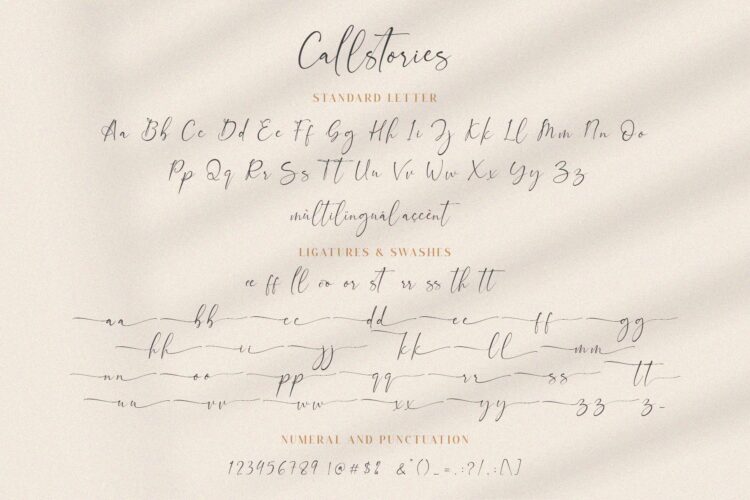 Callstories
STANDARD LETTER
Aa Bb Cc Dd Ee Ff Gg Hh Ii Jj Kk Ll Mm Nn Oo
Pp Qq Rr Ss Tt Uu Vv Ww Xx Yy Zz
mùltilinguál açcènt
LIGATURES & SWASHES
ee ff ll oo or st rr ss th tt
aa bb cc dd ee ff gg
hh ii jj kk ll mm
nn oo pp qq rr ss tt
uu vv ww xx yy zz z-
NUMERAL AND PUNCTUATION
123456789 !@#$% &*()_=,:?/.;[\]